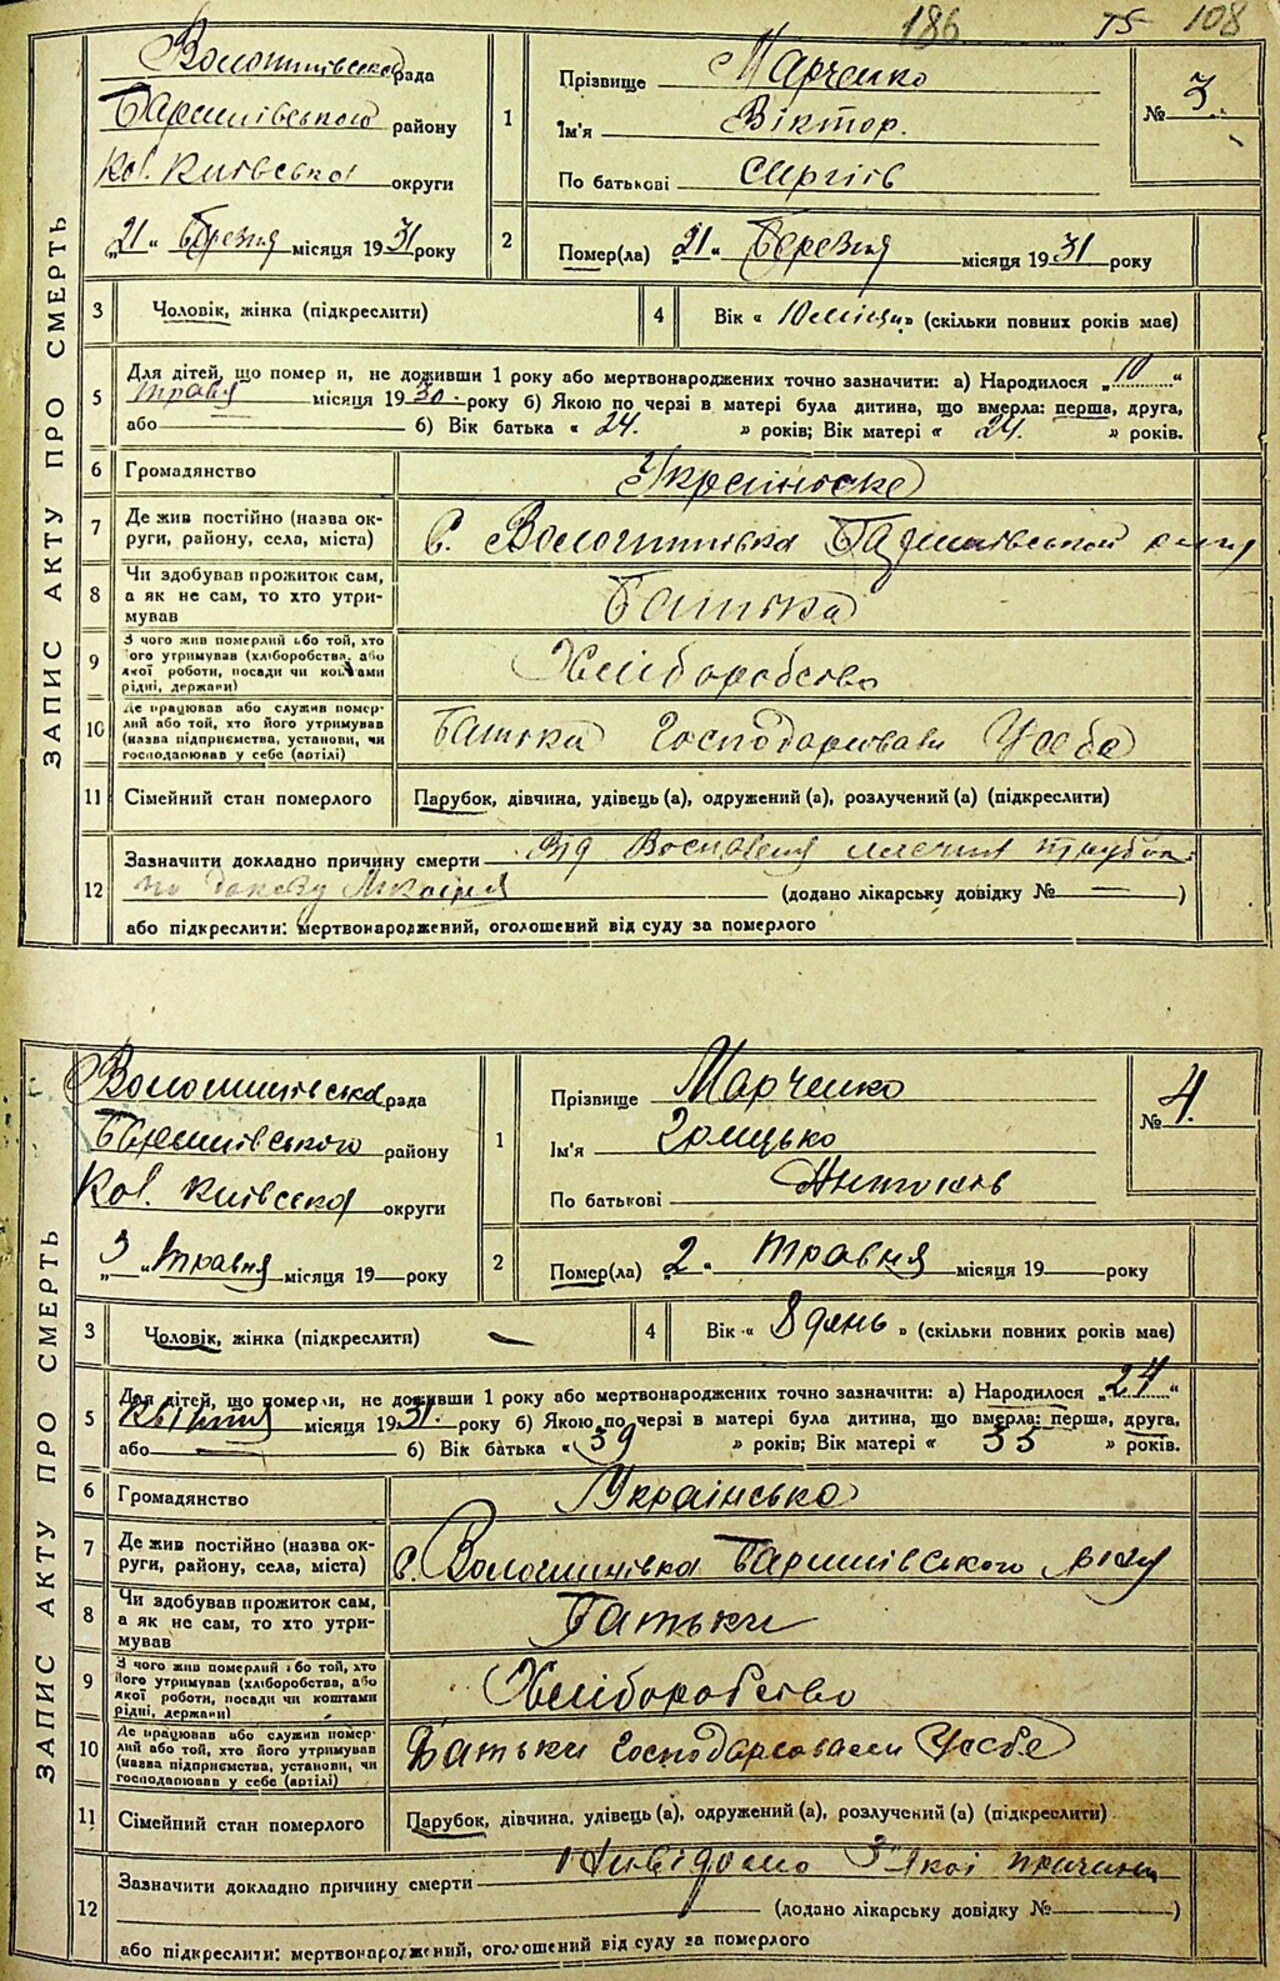 186 75 108
ЗАПИС АКТУ ПРО СМЕРТЬ
Волошинівська рада
Баришівського району
Кол. Київська округи
„21“ Березня місяця 1931 року
1
Прізвище Марченко
Ім'я Віктор.
По батькові Сиргіїв
№ 3.
2 Помер(ла) „21“ Березня місяця 1931 року
3 Чоловік, жінка (підкреслити)
4 Вік « 10 місяц » (скільки повних років має)
5 Для дітей, що померли, не доживши 1 року або мертвонароджених точно зазначити: а) Народилося „10“
травня місяця 1930. року б) Якою по черзі в матері була дитина, що вмерла: перша, друга,
або б) Вік батька « 24. » років; Вік матері « 24. » років.
6 Громадянство Українське
7 Де жив постійно (назва ок-
руги, району, села, міста) С. Волошинівка Баришівської
8 Чи здобував прожиток сам,
а як не сам, то хто утри-
мував Батька
9 З чого жив померлий або той, хто
його утримував (хліборобства, або
якої роботи, посади чи коштами
рідні, держави) Хліборобство
10 Де працював або служив помер-
лий або той, хто його утримував
(назва підприємства, установи, чи
господарював у себе (артілі) Батька Господарювали Усебе
11 Сімейний стан померлого Парубок, дівчина, удівець (а), одружений (а), розлучений (а) (підкреслити)
12 Зазначити докладно причину смерти Від
по (додано лікарську довідку № — )
або підкреслити: мертвонароджений, оголошений від суду за померлого
ЗАПИС АКТУ ПРО СМЕРТЬ
Волошинівська рада
Баришівського району
Кол. Київська округи
„3“ травня місяця 19 — року
1
Прізвище Марченко
Ім'я Грицько
По батькові Антонів
№ 4.
2 Помер(ла) „2“ травня місяця 19 — року
3 Чоловік, жінка (підкреслити) —
4 Вік « 8 день » (скільки повних років має)
5 Для дітей, що померли, не доживши 1 року або мертвонароджених точно зазначити: а) Народилося „24“
Квітня місяця 1931. року б) Якою по черзі в матері була дитина, що вмерла: перша, друга,
або — б) Вік батька « 39 » років; Вік матері « 35 » років.
6 Громадянство Українська
7 Де жив постійно (назва ок-
руги, району, села, міста) С. Волошинівка Баришівського р-ну
8 Чи здобував прожиток сам,
а як не сам, то хто утри-
мував Батьки
9 З чого жив померлий або той, хто
його утримував (хліборобства, або
якої роботи, посади чи коштами
рідні, держави) Хліборобство
10 Де працював або служив помер-
лий або той, хто його утримував
(назва підприємства, установи, чи
господарював у себе (артілі) Батьки Господарювали Усебе
11 Сімейний стан померлого Парубок, дівчина, удівець (а), одружений (а), розлучений (а) (підкреслити)
12 Зазначити докладно причину смерти Нивідомо З якої причини
(додано лікарську довідку № — )
або підкреслити: мертвонароджений, оголошений від суду за померлого